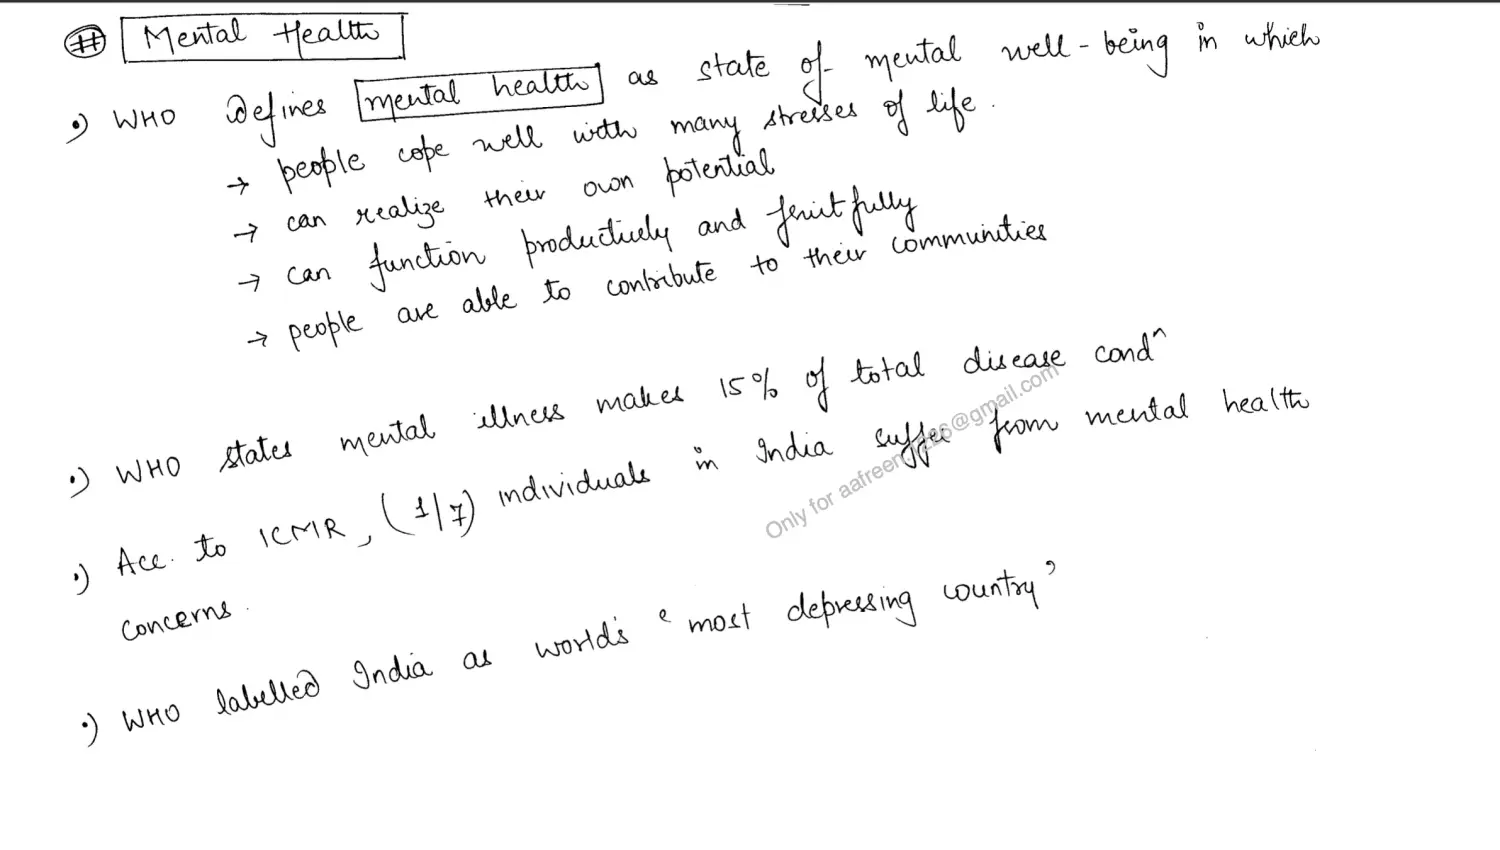 # Mental Health
•) WHO defines mental health as state of mental well-being in which
→ people cope well with many stresses of life.
→ can realize their own potential
→ can function productively and fruitfully
→ people are able to contribute to their communities
•) WHO states mental illness makes 15% of total disease condⁿ
•) Acc. to ICMR, (1/7) individuals in India suffer from mental health
concerns.
•) WHO labelled India as world's 'most depressing country'
Only for